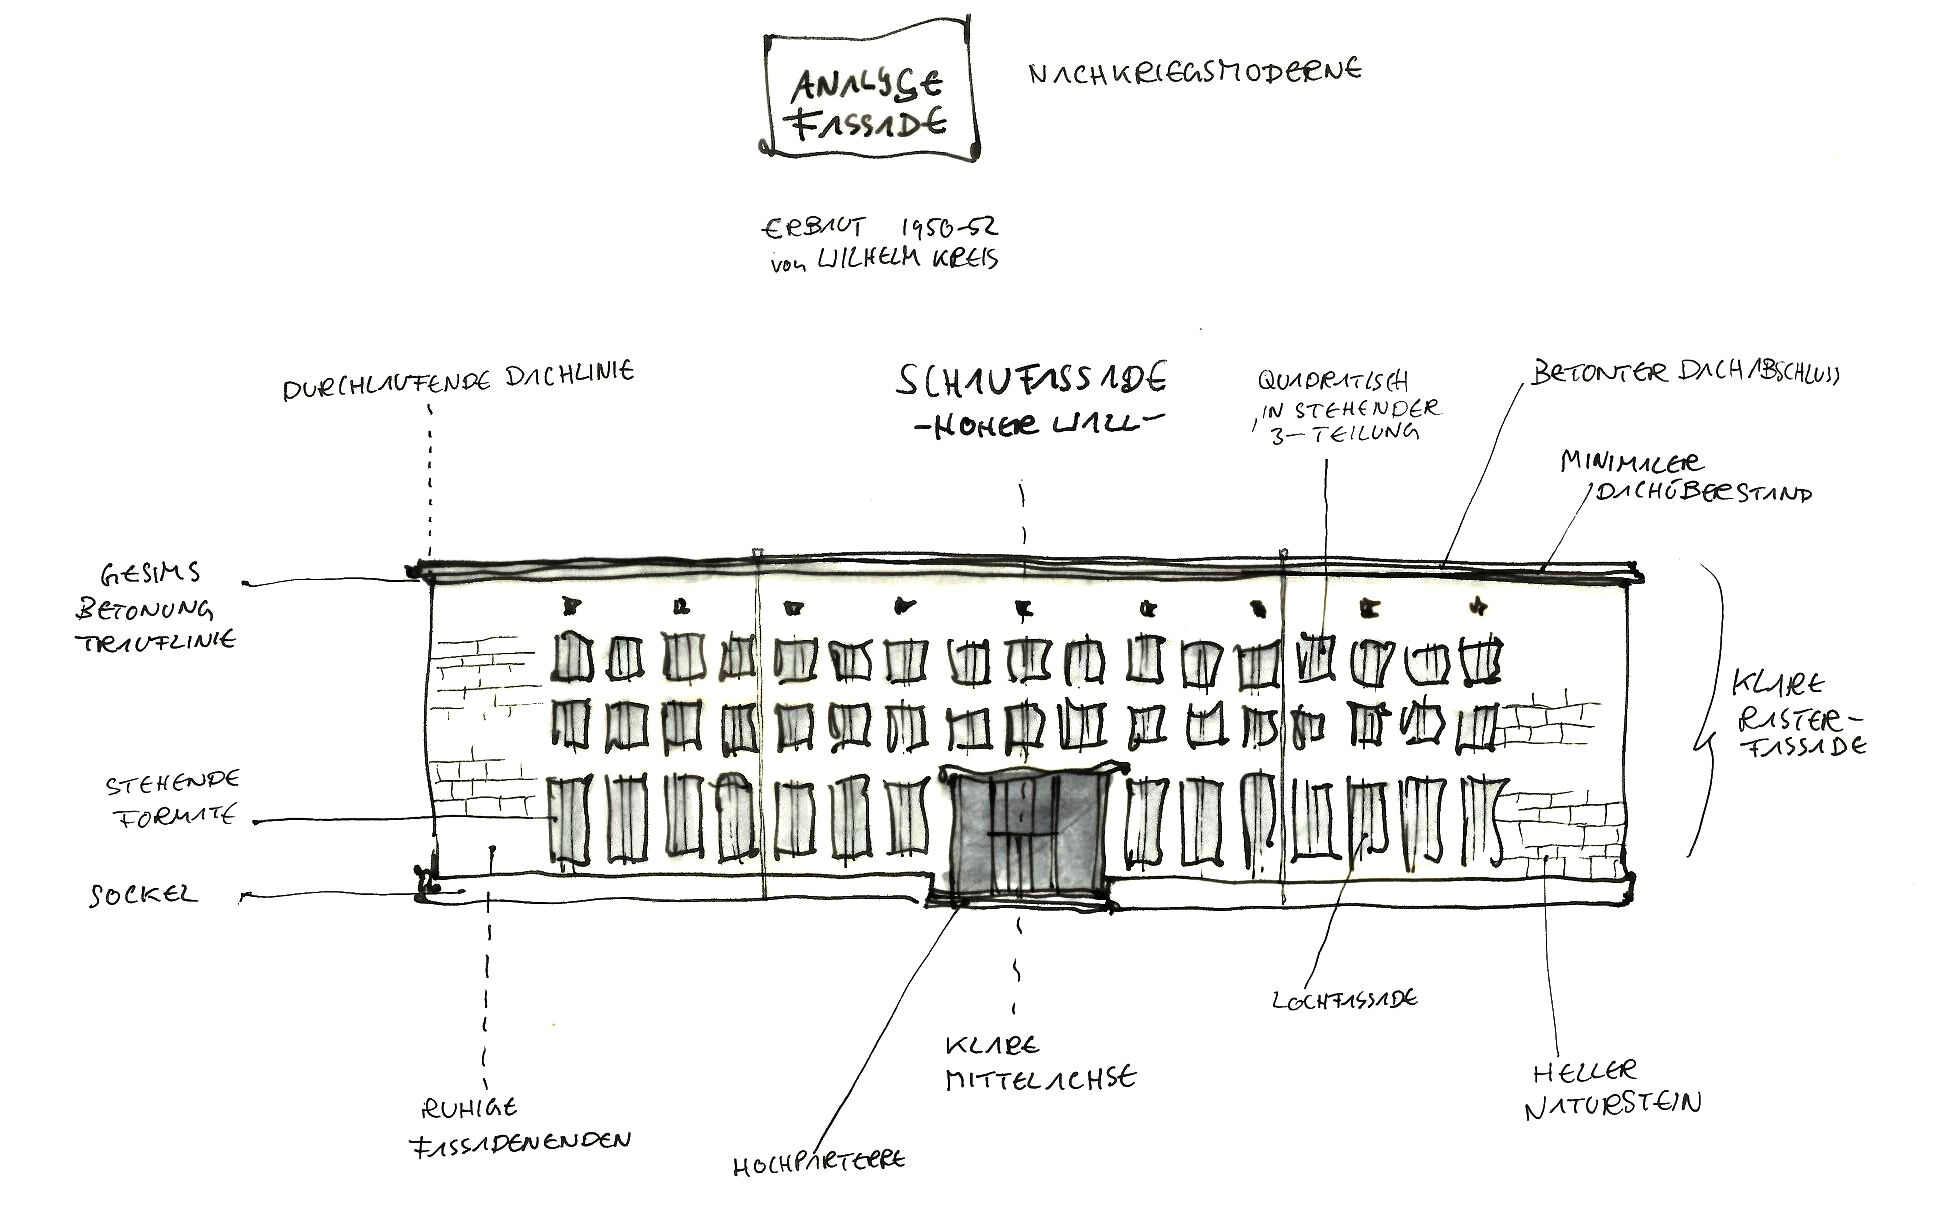 ANALYSE
FASSADE
NACHKRIEGSMODERNE
ERBAUT 1950-52
von WILHELM KREIS
DURCHLAUFENDE DACHLINIE
SCHAUFASSADE
-HOHER WALL-
QUADRATISCH
IN STEHENDER
3-TEILUNG
BETONTER DACHABSCHLUSS
MINIMALER
DACHÜBERSTAND
GESIMS
BETONUNG
TRAUFLINIE
KLARE
RASTER-
FASSADE
STEHENDE
FORMATE
SOCKEL
LOCHFASSADE
KLARE
MITTELACHSE
HELLER
NATURSTEIN
RUHIGE
FASSADENENDEN
HOCHPARTERRE